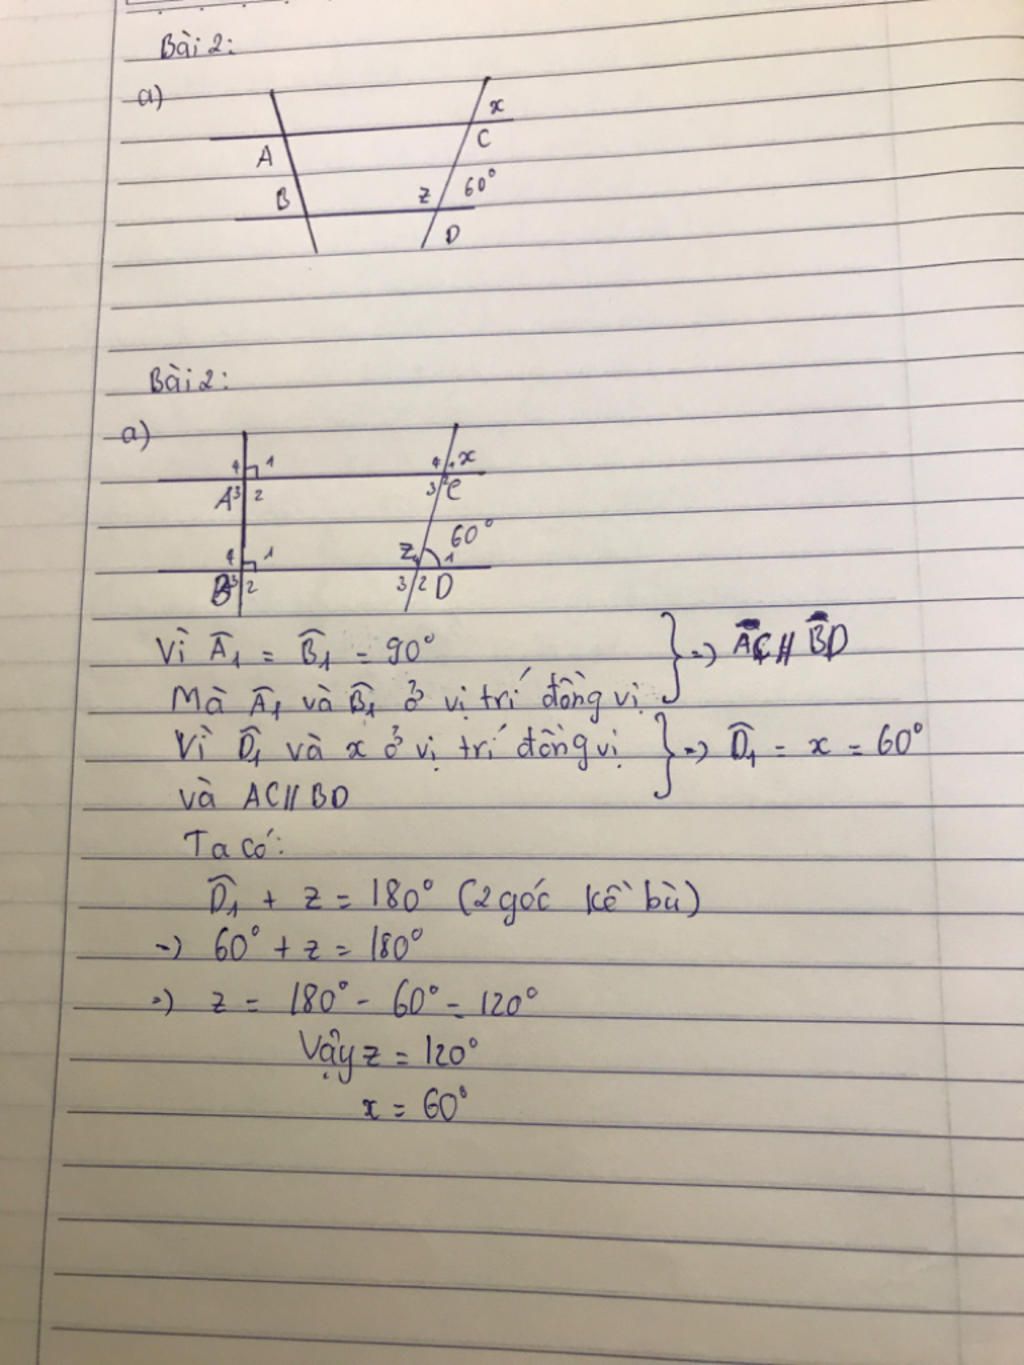 Bài 2:
a)
x
A
C
B
z 60°
D
Bài 2:
a)
4 1 4 1 x
A 3 2 3 2 C
60°
4 1 z 1
B 3 2 3 2 D
Vì Â1 = B̂1 = 90° } => AC // BD
Mà Â1 và B̂1 ở vị trí đồng vị
Vì D̂1 và x ở vị trí đồng vị } => D̂1 = x = 60°
và AC // BD
Ta có:
D̂1 + z = 180° (2 góc kề bù)
=> 60° + z = 180°
=> z = 180° - 60° = 120°
Vậy z = 120°
x = 60°